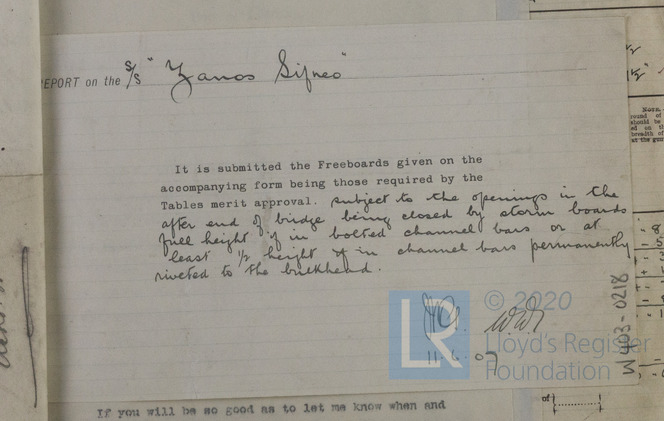 REPORT on the S/S "Zanos Sifneo"
It is submitted the Freeboards given on the
accompanying form being those required by the
Tables merit approval. subject to the openings in the
after end of bridge being closed by storm boards
full height if in bolted channel bars or at
least ½ height if in channel bars permanently
riveted to the bulkhead.
W.W.
11.6.07
LR
© 2020
Lloyd's Register
Foundation
W403-0218
If you will be so good as to let me know when and
NOTE.
round of
should be
ed on th
breadth of
at the gun
of